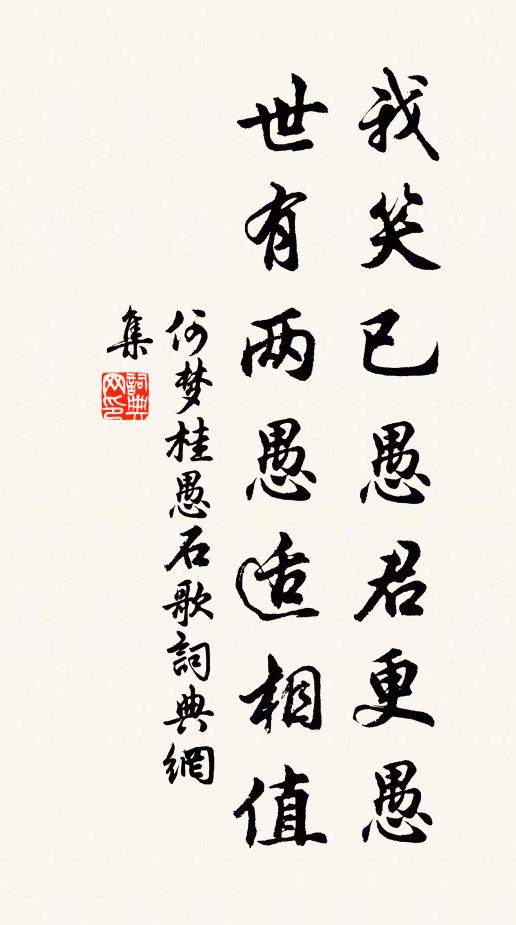 我笑已愚君更愚
世有两愚适相值
何梦桂愚石歌詞典網
集
詞典
网印